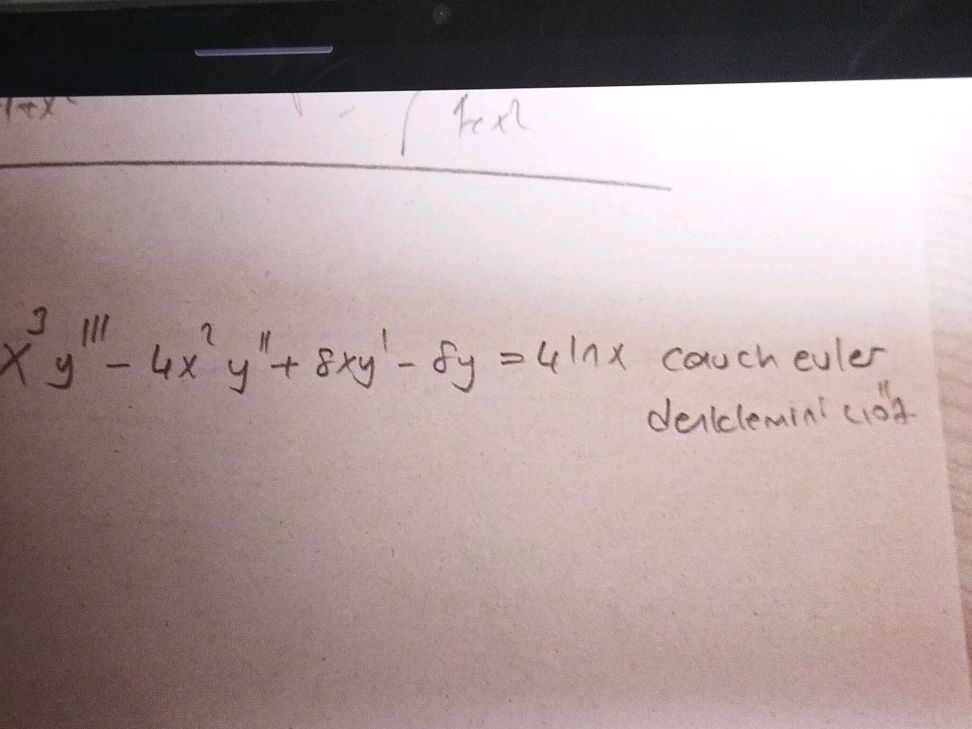 1+x²
1+x²
x³y''' - 4x²y'' + 8xy' - 8y = 4lnx cauch euler
denklemini çöz